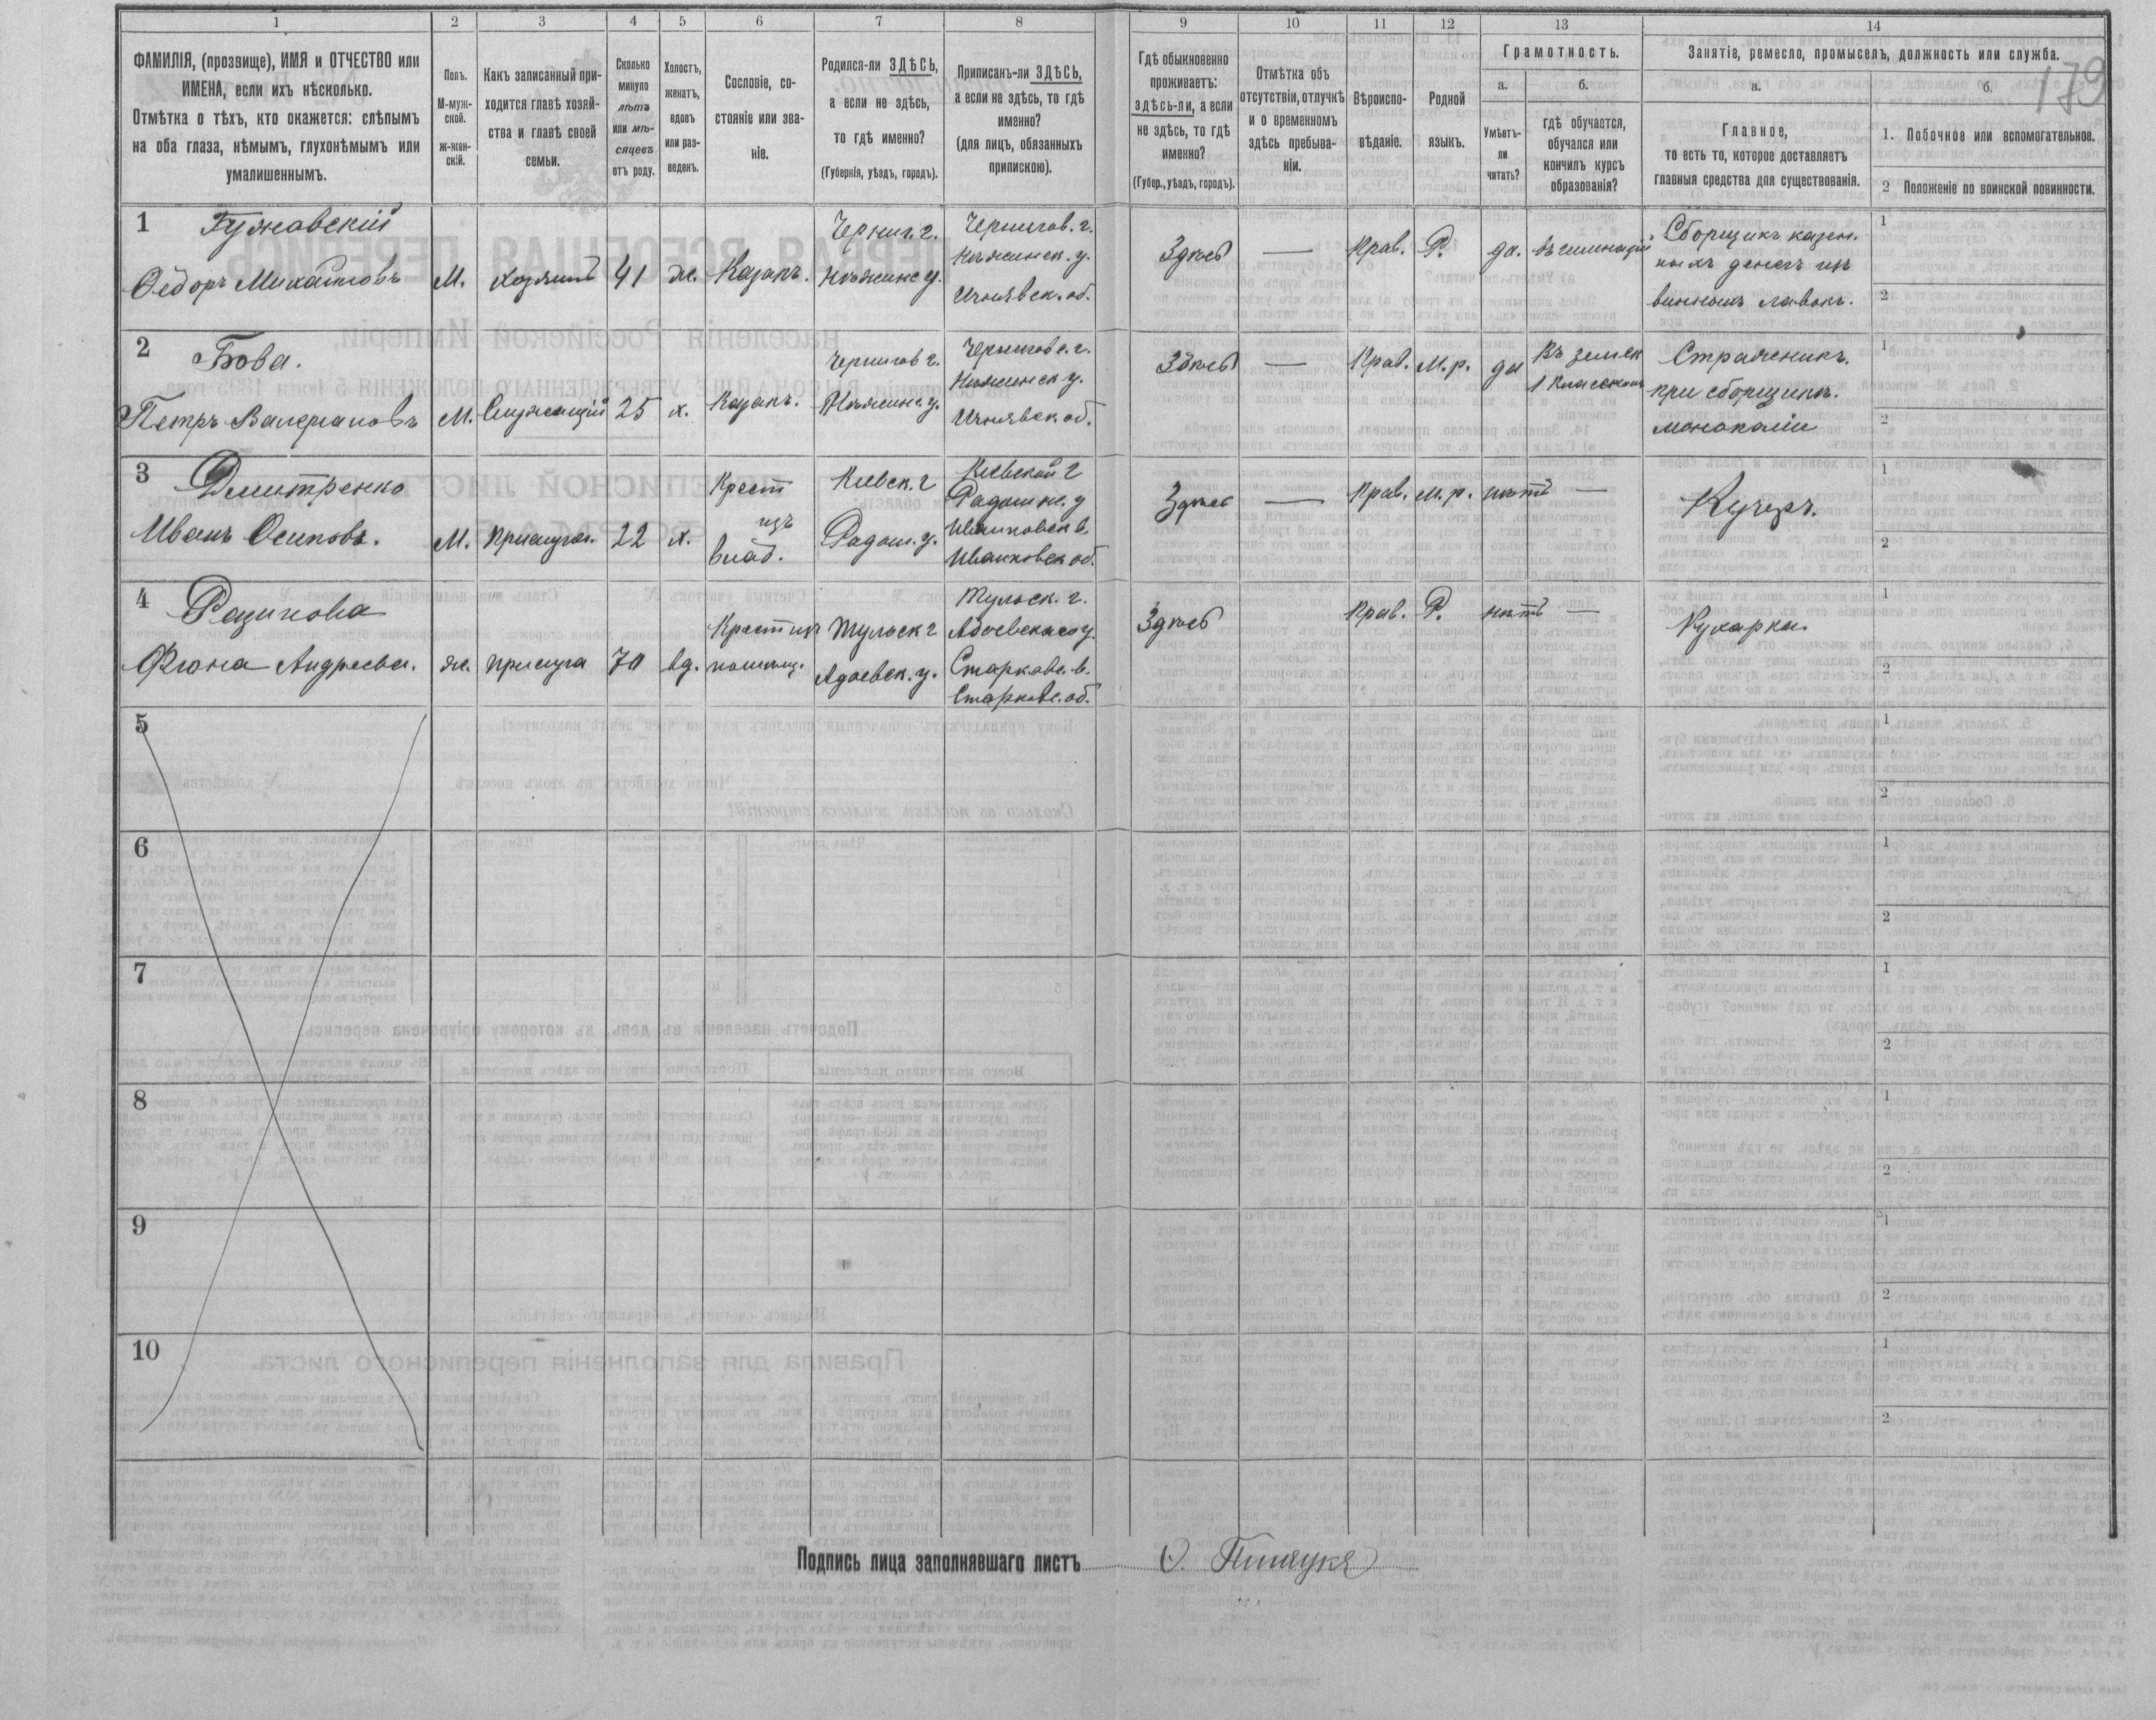 179
1 2 3 4 5 6 7 8 9 10 11 12 13 14
ФАМИЛІЯ, (прозвище), ИМЯ и ОТЧЕСТВО или
ИМЕНА, если ихъ нѣсколько.
Отмѣтка о тѣхъ, кто окажется: слѣпымъ
на оба глаза, нѣмымъ, глухонѣмымъ или
умалишеннымъ.
Полъ.
М-муж-
ской.
ж-жен-
скій.
Какъ записанный при-
ходится главѣ хозяй-
ства и главѣ своей
семьи.
Сколько
минуло
лѣтъ
или мѣ-
сяцевъ
отъ роду.
Холостъ,
женатъ,
вдовъ
или раз-
веденъ.
Сословіе, со-
стояніе или зва-
ніе.
Родился-ли ЗДѢСЬ,
а если не здѣсь,
то гдѣ именно?
(Губернія, уѣздъ, городъ).
Приписанъ-ли ЗДѢСЬ,
а если не здѣсь, то гдѣ
именно?
(для лицъ, обязанныхъ
припискою).
Гдѣ обыкновенно
проживаетъ:
здѣсь-ли, а если
не здѣсь, то гдѣ
именно?
(Губер., уѣздъ, городъ).
Отмѣтка объ
отсутствіи, отлучкѣ
и о временномъ
здѣсь пребыва-
ніи.
Вѣроиспо-
вѣданіе.
Родной
языкъ.
Грамотность.
а.
Умѣетъ-
ли
читать?
б.
гдѣ обучается,
обучался или
кончилъ курсъ
образованія?
Занятіе, ремесло, промыселъ, должность или служба.
а.
Главное,
то есть то, которое доставляетъ
главныя средства для существованія.
б.
1. Побочное или вспомогательное.
2 Положеніе по воинской повинности.
1
Гужовскій
Ѳедоръ Михайловъ
М.
хозяинъ
41
ж.
Казакъ.
Черниг. г.
Нѣжинс у.
Чернигов. г.
Нѣжинск. у.
Ичнявск. об.
Здѣсь
—
Прав.
Р.
да.
въ гимназіи
Сборщикъ казен.
ныхъ денегъ изъ
винныхъ лавокъ.
1
2
2
Бова.
Петръ Валеріановъ
М.
Служащій
25
х.
Казакъ.
Чернигов г.
Нѣжинс. у.
Черниговс. г.
Нѣжинск у.
Ичнявск. об.
Здѣсь
—
Прав.
М. р.
да
Въ земск
1 классномъ
Стражникъ.
при сборщикѣ.
монополіи
1
2
3
Дмитренко
Иванъ Осиповъ.
М.
прислуга.
22
х.
Крест
изъ
влад.
Кіевск. г
Радом. у.
Кіевской г
Радомыс. у
Иванковск в.
Иванковск об.
Здѣсь
—
Прав.
м. р.
нѣтъ
—
Кучеръ.
1
2
4
Разинова
Ѳіона Андреева.
ж.
прислуга
70
вд.
Крест изъ
помѣщ.
Тульск г
Адоевск. у.
Тульск. г.
Адоевскаго у.
Старковс. в.
Старковс. об.
Здѣсь
Прав.
Р.
нѣтъ
—
Кухарка.
1
2
5
1
2
6
1
2
7
1
2
8
1
2
9
1
2
10
1
2
Подпись лица заполнявшаго листъ